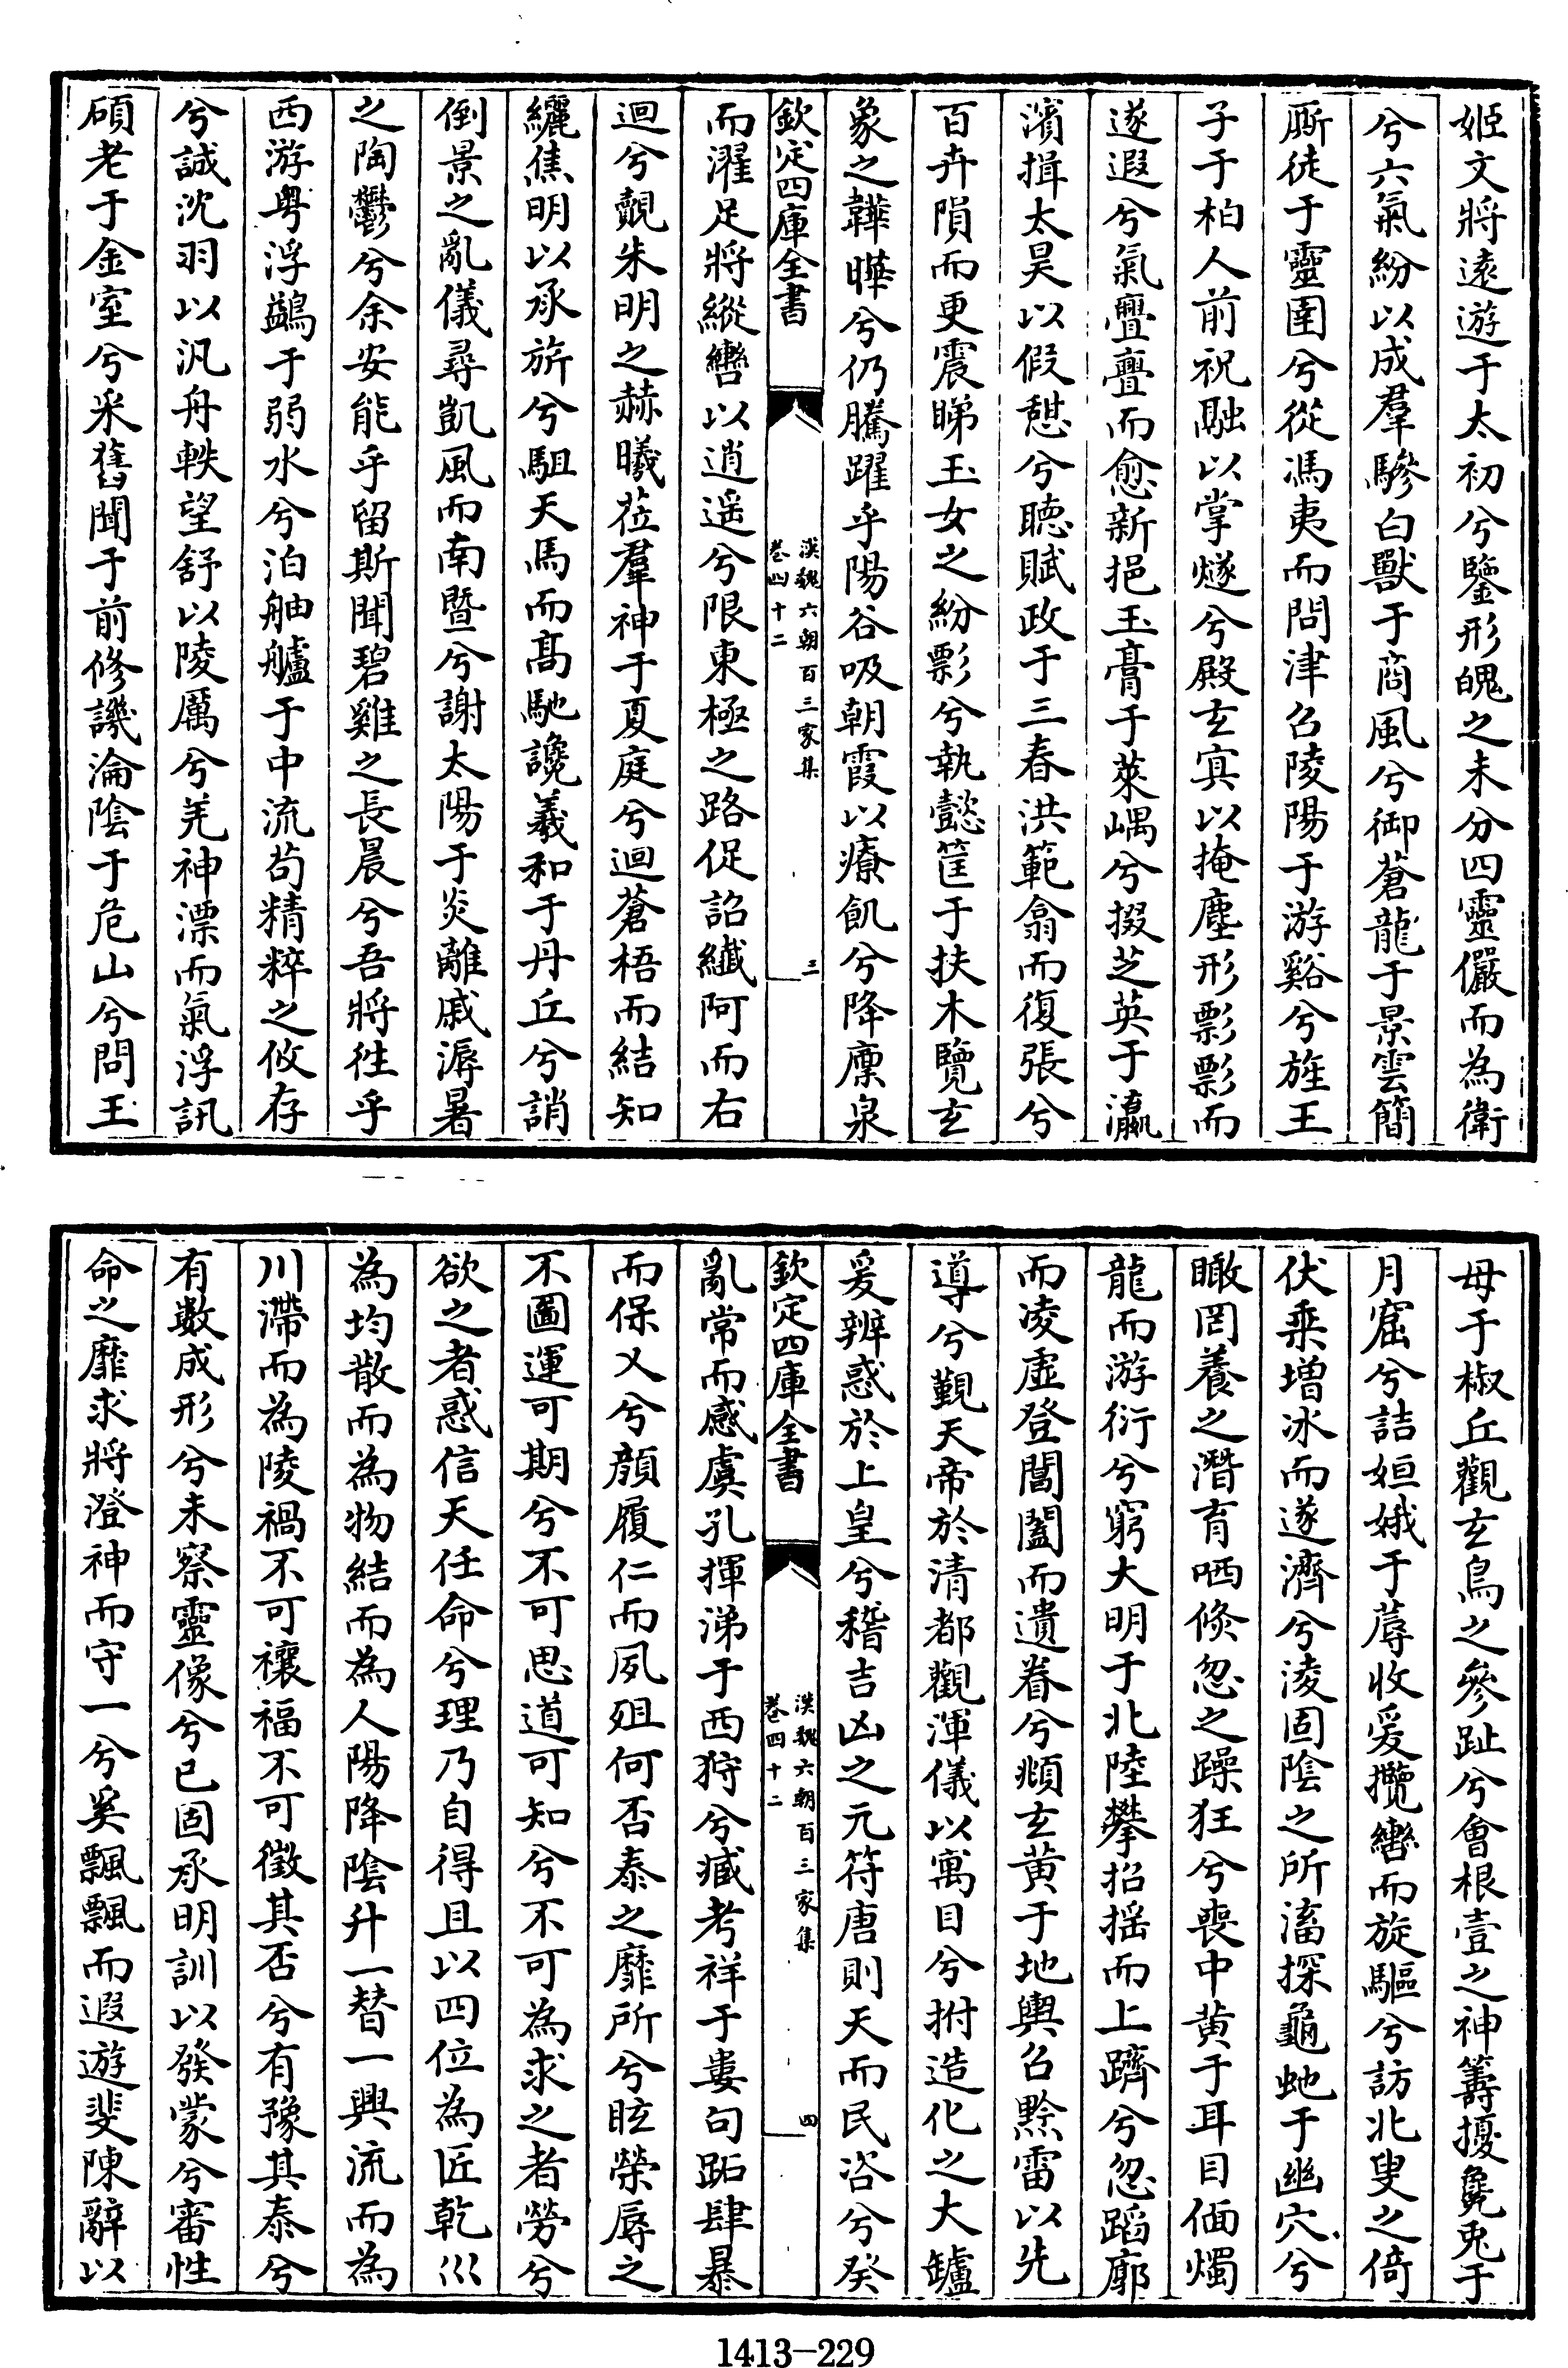 姬文將遠遊于太初兮鑒形魄之未分四靈儼而為衛
兮六氣紛以成羣驂白獸于商風兮御蒼龍于景雲簡
厮徒于靈圉兮從馮夷而問津召陵陽于游谿兮旌王
子于柏人前祝融以掌燧兮殿玄冥以掩塵形影影而
遂遐兮氣亹亹而愈新挹玉膏于萊嵎兮掇芝英于瀛
濱揖太昊以假憩兮聽賦政于三春洪範翕而復張兮
百卉隕而更震睇玉女之紛影兮執懿筐于扶木覽玄
象之韡曄兮仍騰躍乎陽谷吸朝霞以療飢兮降廩泉
欽定四庫全書
漢魏六朝百三家集
卷四十二
三
而濯足將縱轡以逍遥兮限東極之路促詔纖阿而右
迴兮覿朱明之赫曦莅羣神于夏庭兮迴蒼梧而結知
纚焦明以承旂兮駔天馬而高馳讒羲和于丹丘兮誚
倒景之亂儀尋凱風而南暨兮謝太陽于炎離戚溽暑
之陶鬱兮余安能乎留斯聞碧雞之長晨兮吾將徃乎
西游粤浮鷁于弱水兮泊舳艫于中流苟精粹之攸存
兮誠沈羽以汎舟軼望舒以陵厲兮羌神漂而氣浮訊
碩老于金室兮采舊聞于前修譏淪陰于危山兮問王
母于椒丘觀玄鳥之參趾兮會根壹之神籌擾毚兎于
月窟兮詰姮娥于蓐收爰攬轡而旋驅兮訪北叟之倚
伏乗增冰而遂濟兮淩固陰之所滀探龜虵于幽穴兮
瞰罔養之潛育哂倐忽之躁狂兮喪中黄于耳目偭燭
龍而游衍兮窮大明于北陸攀招揺而上躋兮忽蹈廓
而凌虚登閶闔而遺眷兮頫玄黄于地輿召黔雷以先
導兮覲天帝於清都觀渾儀以寓目兮拊造化之大鑪
爰辨惑於上皇兮稽吉凶之元符唐則天而民咨兮癸
欽定四庫全書
漢魏六朝百三家集
卷四十二
四
亂常而感虞孔揮涕于西狩兮臧考祥于婁句跖肆暴
而保乂兮顔履仁而夙殂何否泰之靡所兮眩榮辱之
不圖運可期兮不可思道可知兮不可為求之者勞兮
欲之者惑信天任命兮理乃自得且以四位為匠乾巛
為均散而為物結而為人陽降陰升一替一興流而為
川滯而為陵禍不可禳福不可徵其否兮有豫其泰兮
有數成形兮未察靈像兮已固承明訓以發蒙兮審性
命之靡求將澄神而守一兮奚飄飄而遐遊斐陳辭以
1413-229